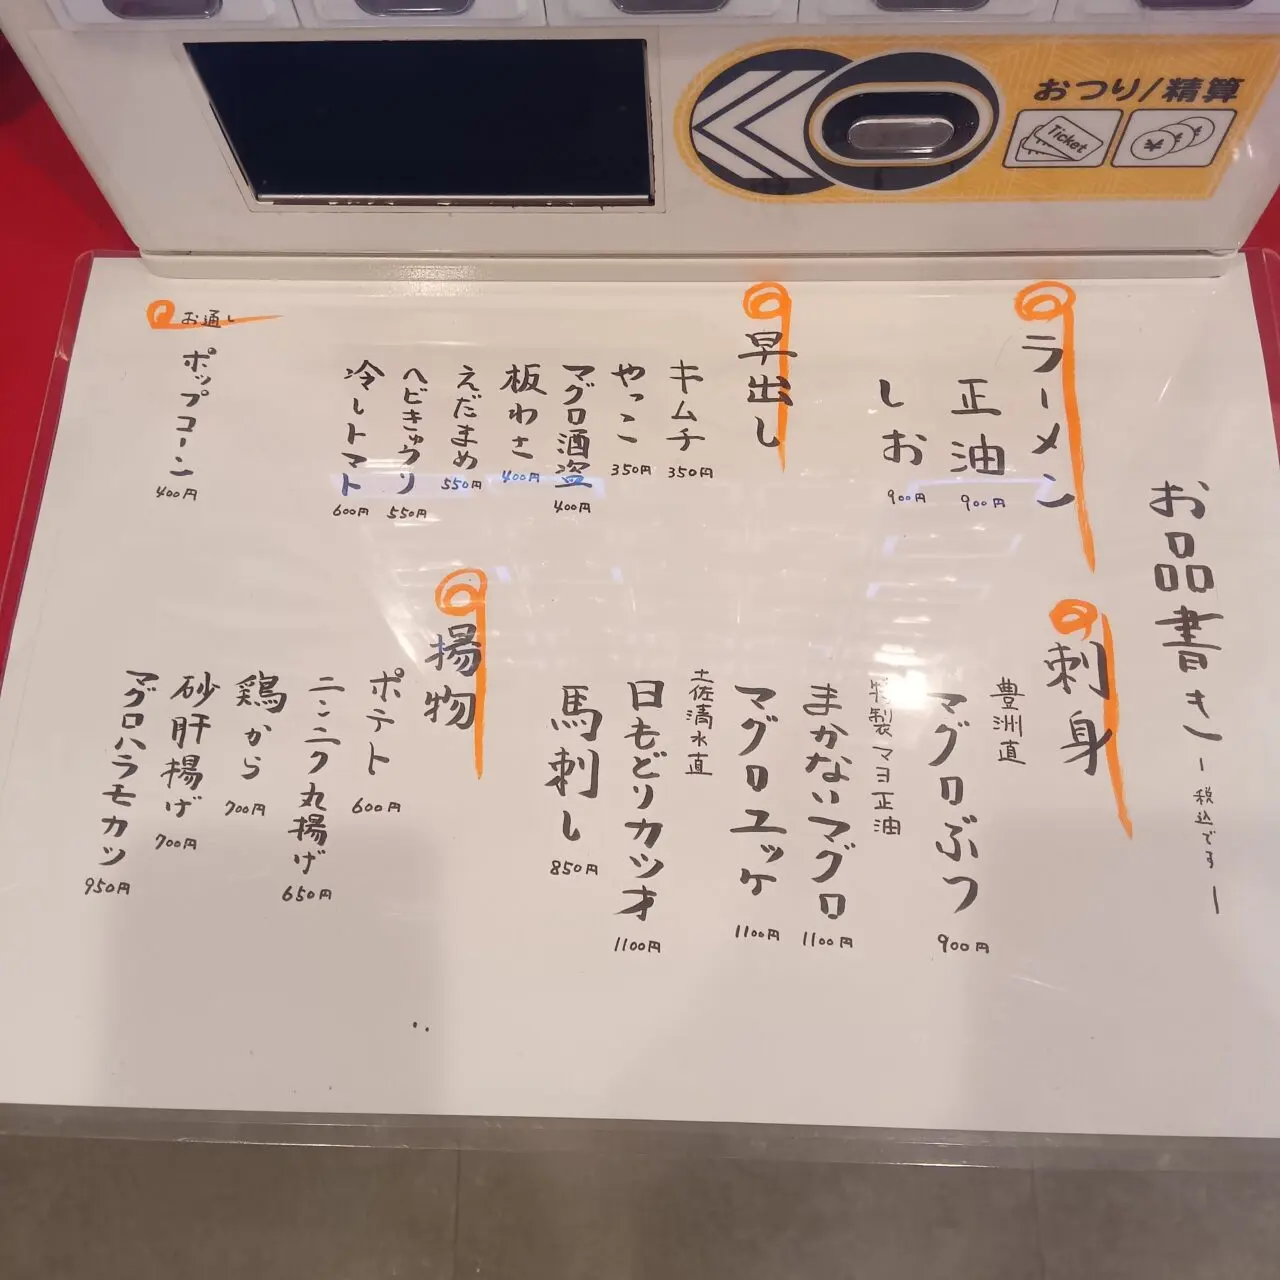 おつり/精算
Ticket
¥ ¥ ¥
お品書き
ー税込ですー
ラーメン
正油
900円
しお
900円
早出し
キムチ
350円
やっこ
350円
マグロ酒盗
400円
板わさ
400円
えだまめ
550円
ヘビきゅウリ
550円
冷しトマト
600円
お通し
ポップコーン
400円
刺身
豊洲直
マグロぶつ
900円
特製マヨ正油
まかないマグロ
1100円
マグロユッケ
1100円
土佐清水直
日もどりカツオ
1100円
馬刺し
850円
揚物
ポテト
600円
ニンニク丸揚げ
650円
鶏から
700円
砂肝揚げ
700円
マグロハラモカツ
950円